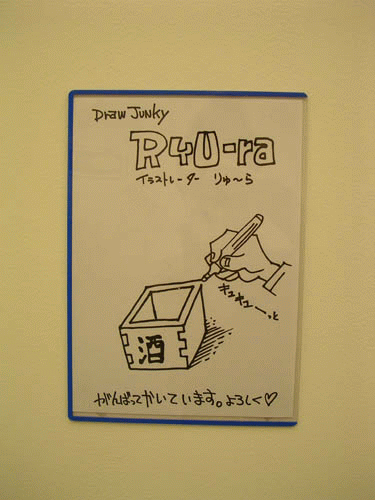 Draw Junky
RYU-ra
イラストレーター りゅ〜ら
キュキューっと
酒
がんばってかいています。よろしく♡